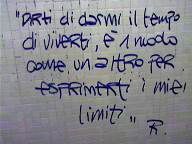 "Darti di darmi il tempo
di viverti, è 1 modo
come un altro per
esprimerti i miei
limiti"
R.